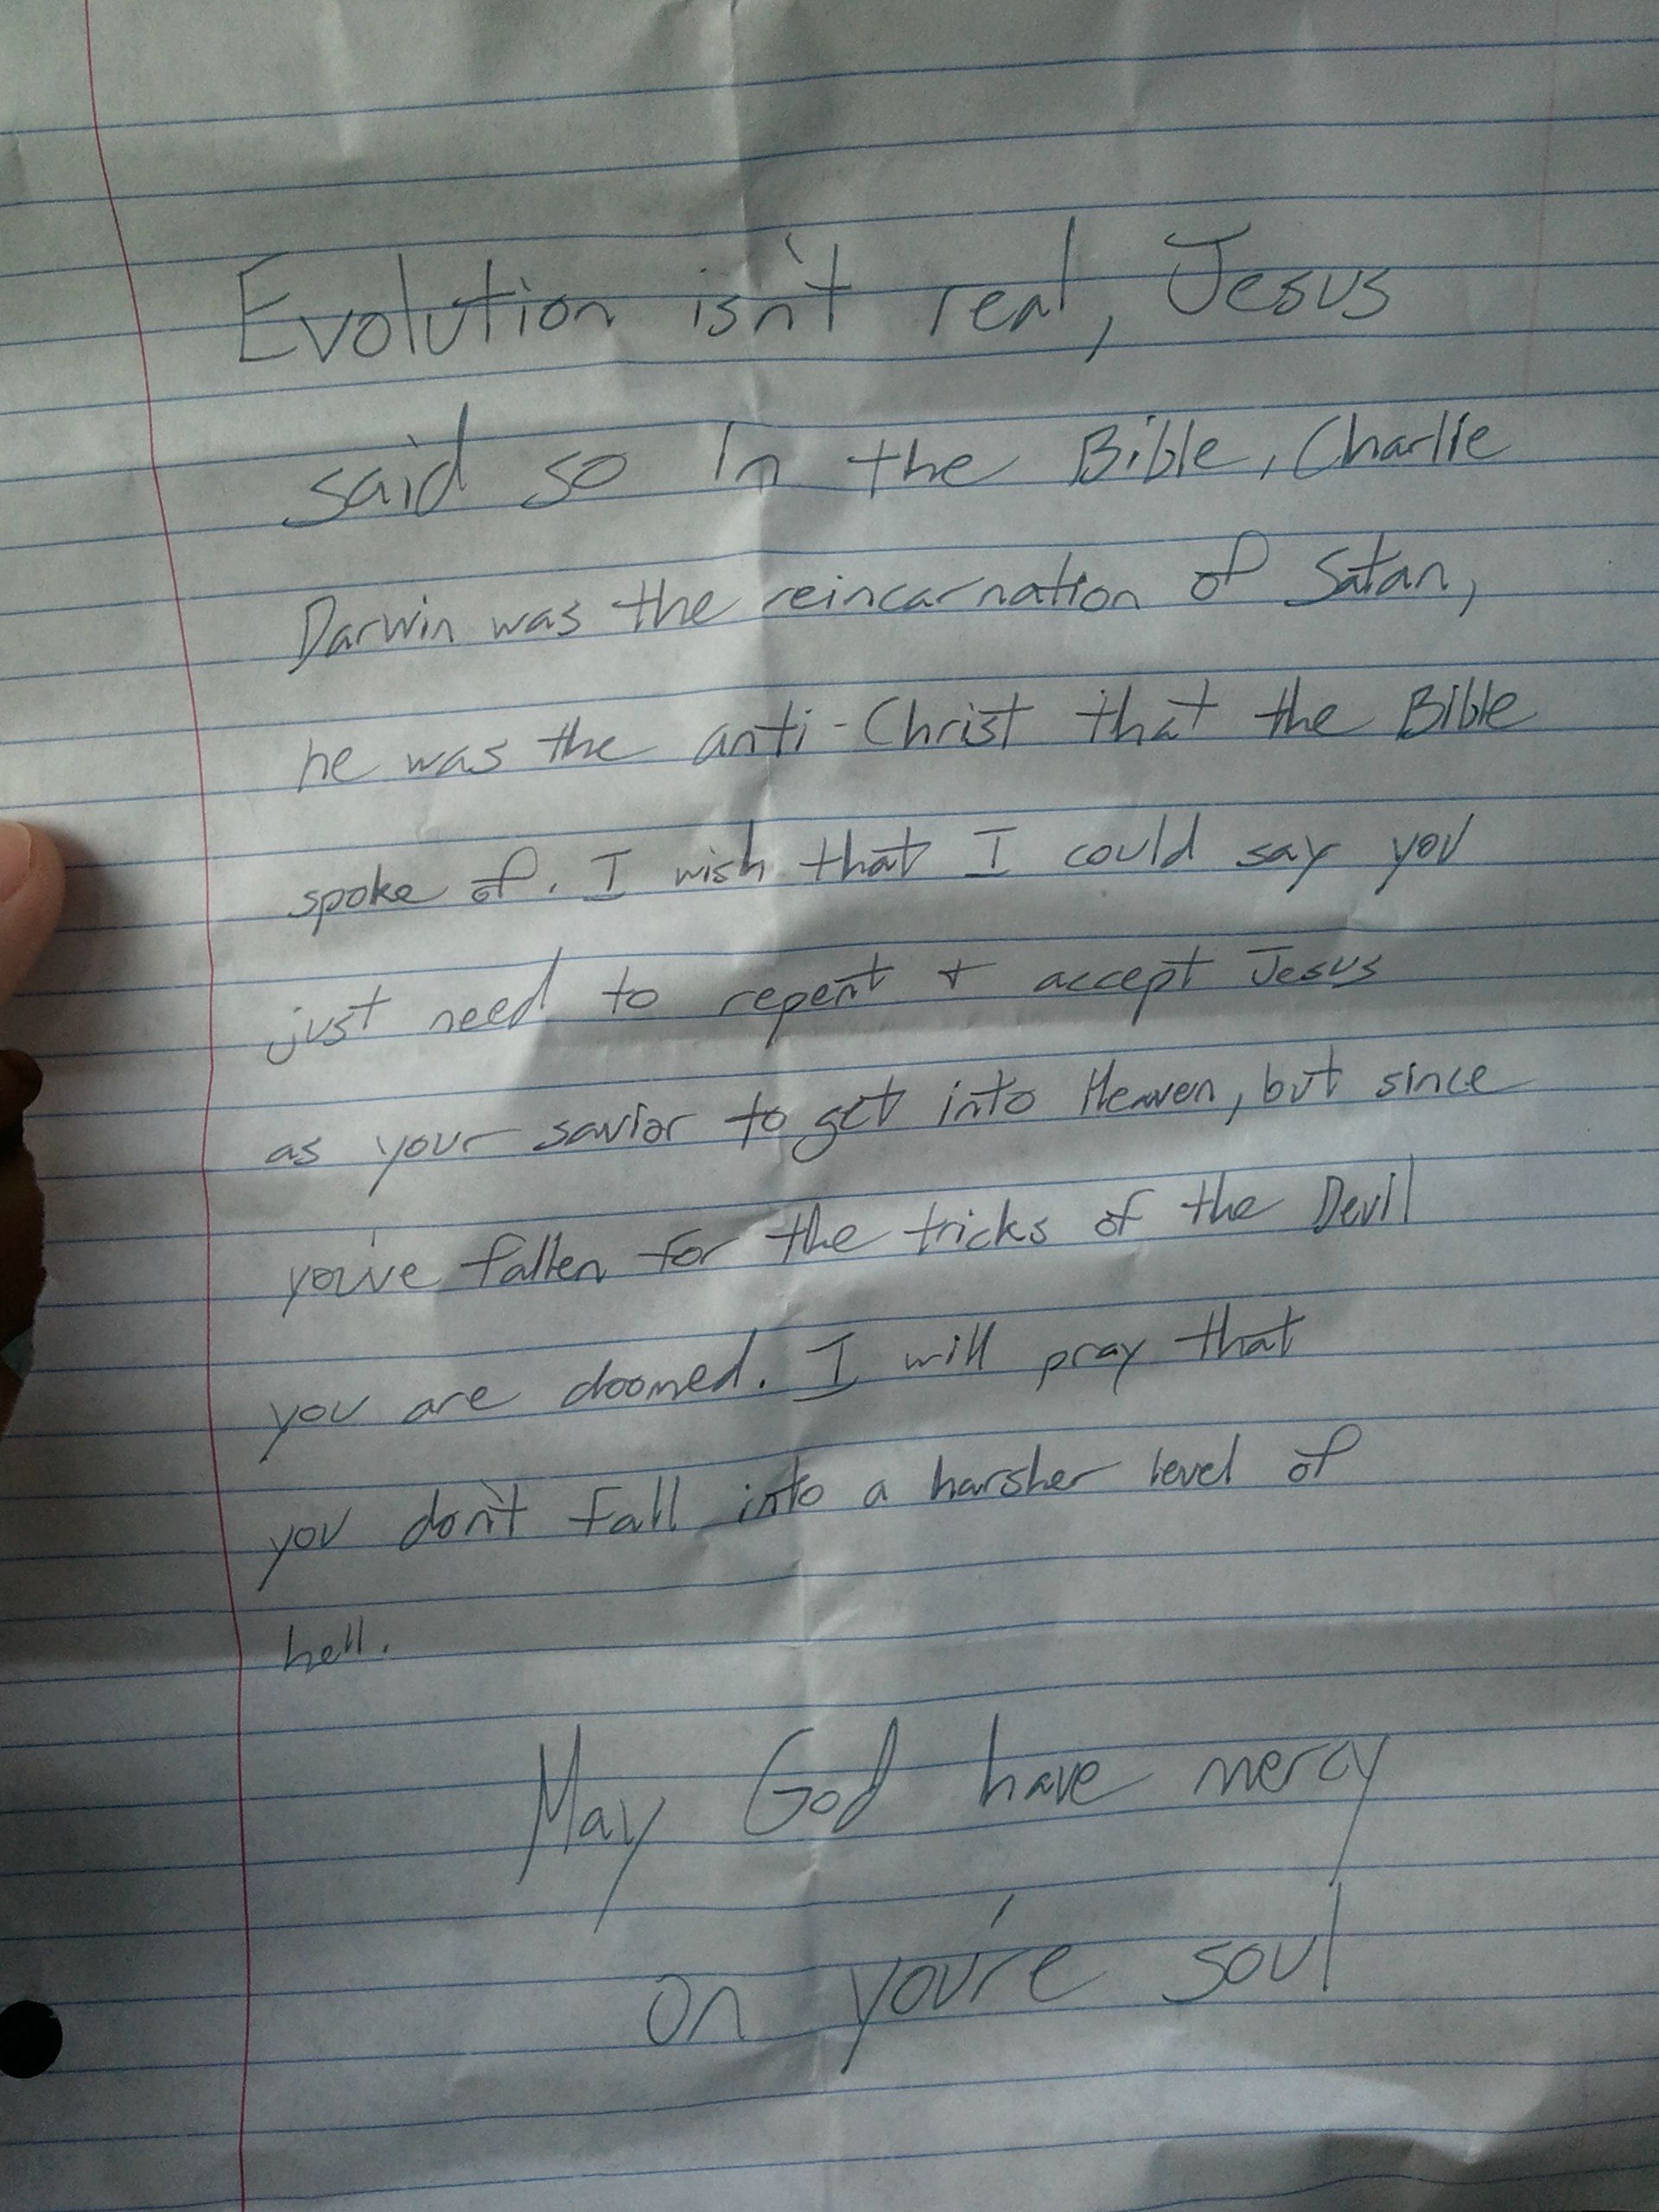 Evolution isn't real, Jesus
said so In the Bible, Charlie
Darwin was the reincarnation of Satan,
he was the anti-Christ that the Bible
spoke of. I wish that I could say you
just need to repent + accept Jesus
as your savior to get into Heaven, but since
you've fallen for the tricks of the Devil
you are doomed. I will pray that
you don't fall into a harsher level of
hell.
May God have mercy
on you're soul